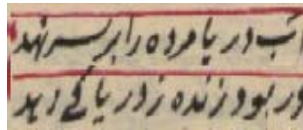 آب دریا مرده را بر سر نهد
ور بود زنده ز دریا کی رهد